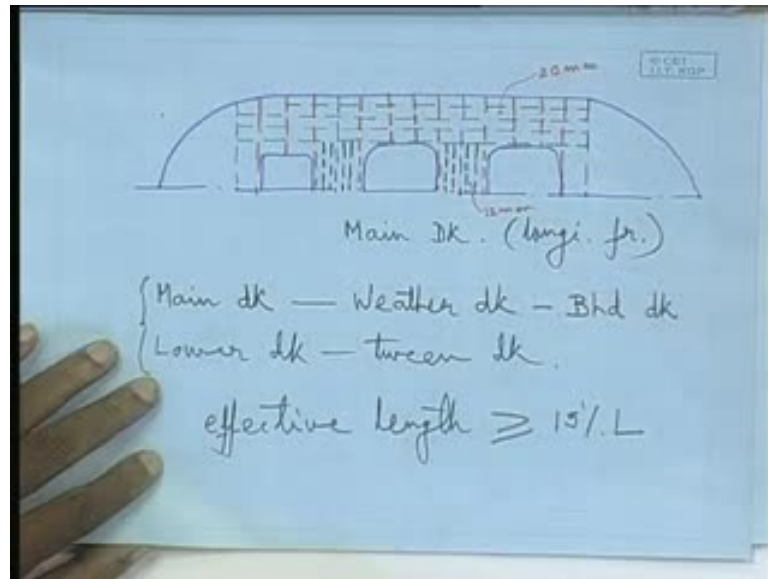 © CET
I.I.T. KGP
20 mm
12 mm
Main Dk. (longi. fr.)
Main dk — Weather dk — Bhd dk
Lower dk — tween dk.
effective length ≥ 15% L